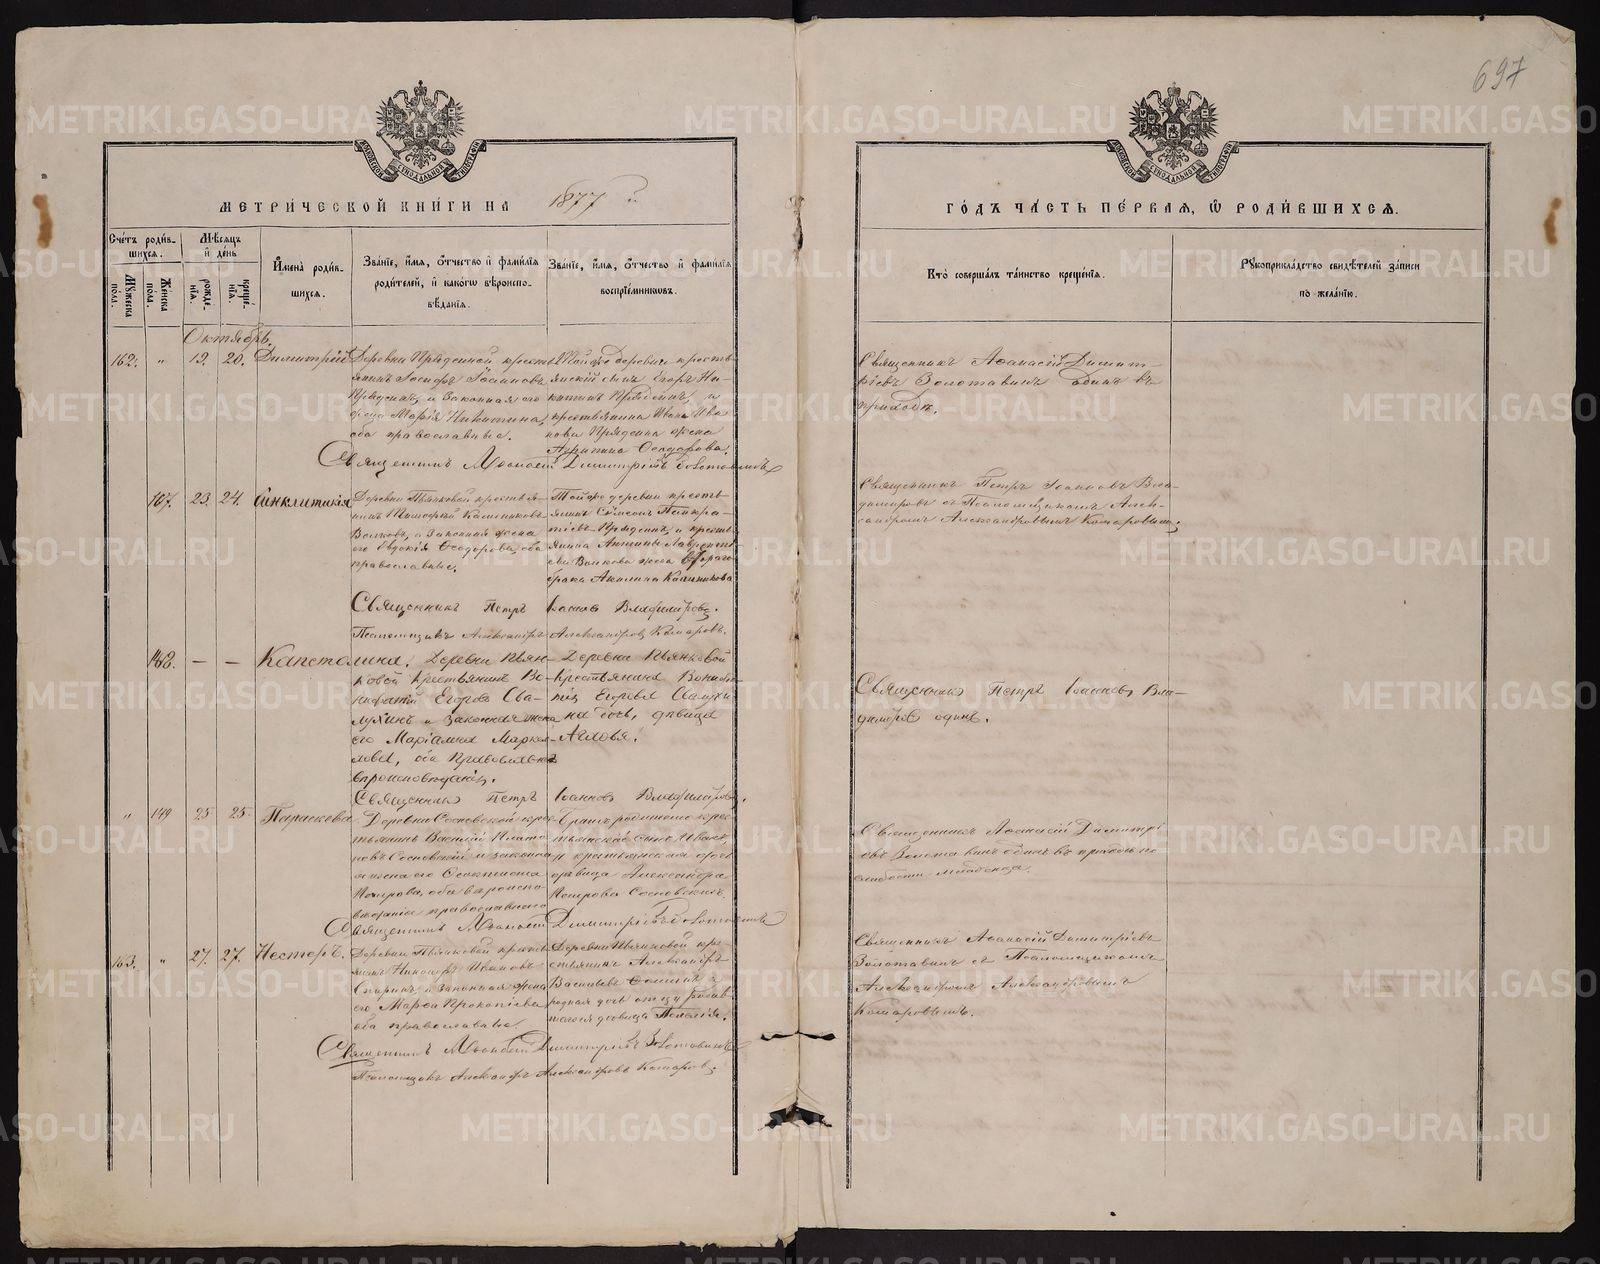 697
МЕТРИ́ЧЕСКОЙ КНИ́ГИ НА 1877 й
ГО́ДЪ ЧА́СТЬ ПЕ́РВАЯ, Ѡ РОДИ́ВШИХСЯ.
Сче́тъ роди́в-
шихся.
Мужеска пола.
Же́нска пола.
Мѣсяцъ
и́ де́нь
рожде-
нїя.
креще-
нїя.
И҆мена̀ роди́в-
шихся.
Зва́нїе, и҆мя, ѻ҆тчество и҆ фами́лїя
роди́телей, и҆ како́гѡ вѣроиспо-
вѣ́данїя.
Зва́нїе, и҆мя, ѻ҆тчество и҆ фами́лїя
воспрїе́мниковъ.
Кто̀ соверша́лъ та́инство креще́нїя.
Рукоприкла́дство свидѣ́телей за́писи
по жела́нїю.
Октябрь.
162. " 19. 20. Димитрій
Деревни Прядеиной кресть-
янинъ Іосифъ
и законная его
жена Марія Никитина,
оба православные.
Тойже деревни кресть-
янскій сынъ Егоръ Ни-
китинъ Прядеинъ, и
крестьянина Ивана Ива-
нова Прядеина жена
Ѳеодорова.
Священникъ Аѳанасій Димитріевъ Золотавинъ
Священникъ Аѳанасій Димит-
ріевъ Золотавинъ одинъ въ
приходѣ.
167. 23. 24. Синклитикія
Деревни Пьянковой крестья-
нинъ Тимофей Калинниковъ
Волковъ, и законная жена
его Евдокія Ѳеодорова, оба
православные.
Тойже деревни кресть-
янинъ Симеонъ Панкра-
тіевъ Прядеинъ, и кресть-
янина Антипы Лавренті-
ева Волкова жена втораго
брака Акилина Калинникова
Священникъ Петръ Іоанновъ Владиміровъ.
Псаломщикъ Александръ Александровъ Комаровъ.
Священникъ Петръ Іоанновъ Вла-
диміровъ съ Псаломщикомъ Алек-
сандромъ Александровымъ Комаровымъ.
168. — — Капетолина.
Деревни Пьян-
ковой крестьянинъ Во-
нифатій Егоровъ Сва-
лухинъ и законная жена
его Маріамна Маркел-
лова, оба Православнаго
вѣроисповѣданія.
Деревни Пьянковой
Крестьянина Вонифа-
тія Егорова Свалухи-
на дочь, дѣвица
Священникъ Петръ Іоанновъ Владиміровъ.
Священникъ Петръ Іоанновъ Вла-
диміровъ одинъ.
" 149 25 25 Параскева
Деревни Сосновской кре-
стьянинъ Василій Плато-
новъ Сосновскій и законна
я жена его
Петрова, оба вѣроиспо-
вѣданія православнаго
крес-
тьянскій сынъ Иванъ,
и крестьянская дочь
дѣвица Александра
Петрова Сосновскихъ.
Священникъ Аѳанасій Димитріевъ Золотавинъ
Священникъ Аѳанасій Димитрі-
евъ Золотавинъ одинъ въ приходѣ по
слабости младенца.
163. " 27. 27. Несторъ.
Деревни Пьянковой кресть-
янинъ Никифоръ Ивановъ
и законная жена
его Марѳа Прокопіева
оба православные.
Деревни Пьянковой кре-
стьянинъ Александръ
Васильевъ Ѳоминъ и
родная дочь отцу
дѣвица Пелагія.
Священникъ Аѳанасій Димитріевъ Золотавинъ
Псаломщикъ Александръ Александровъ Комаровъ.
Священникъ Аѳанасій Димитріевъ
Золотавинъ съ Псаломщикомъ
Александромъ Александровымъ
Комаровымъ.
METRIKI.GASO-URAL.RU